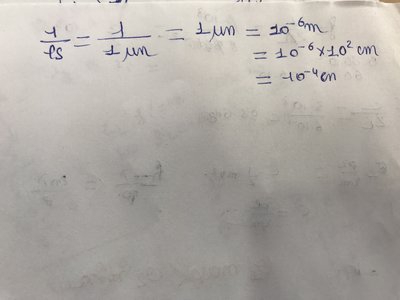 1/ps = 1/1μm = 1μm = 10⁻⁶m
= 10⁻⁶×10² cm
= 10⁻⁴cm